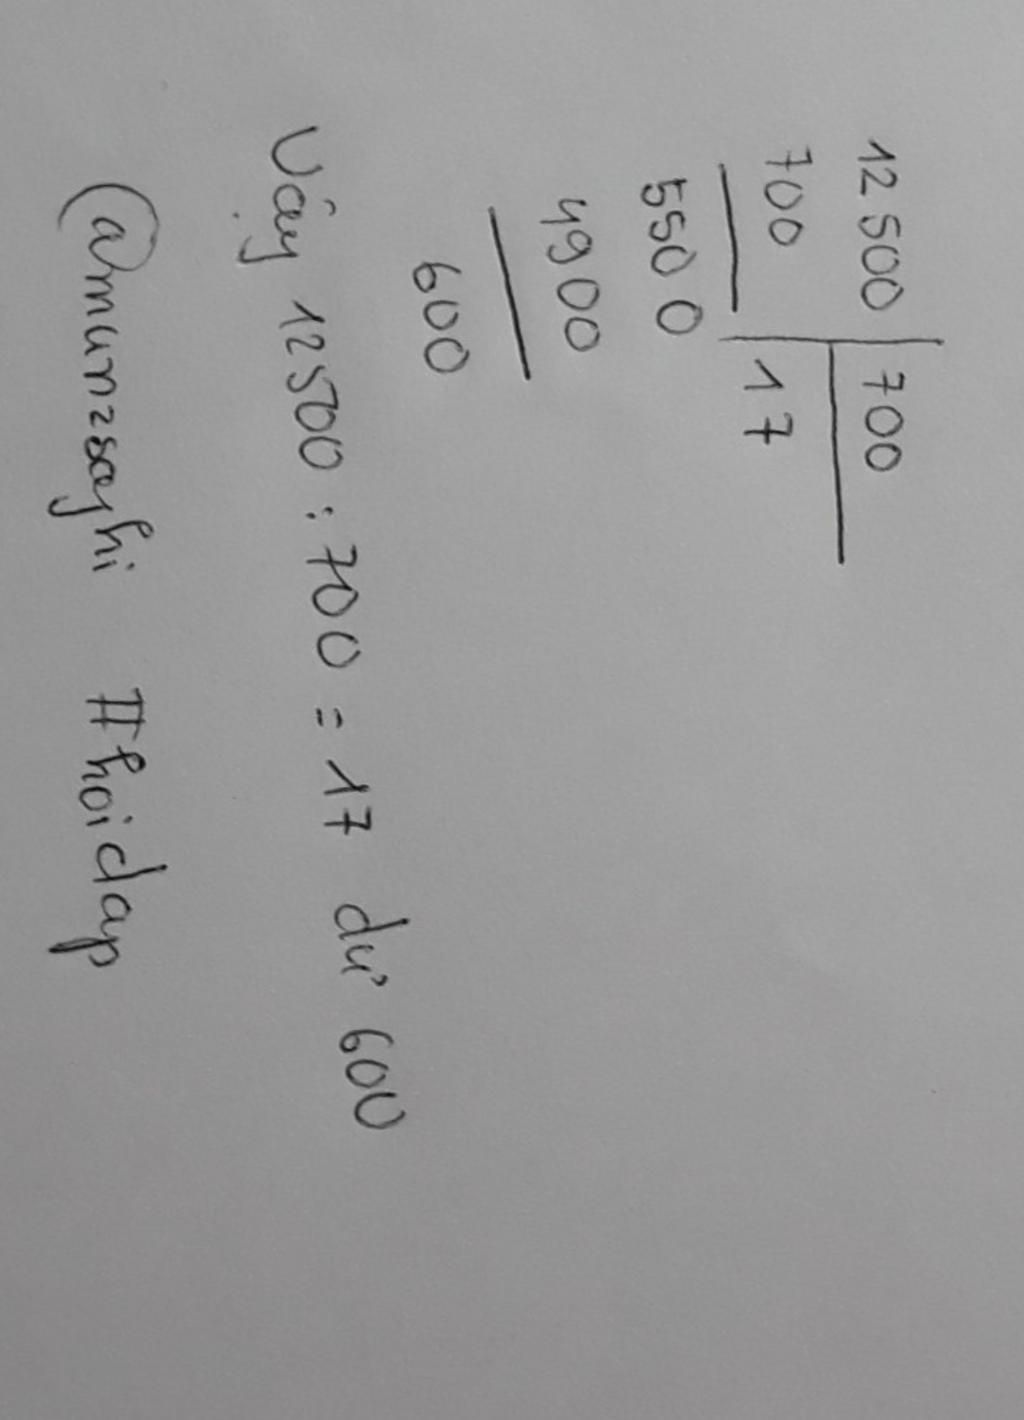 12 500 | 700
700
17
5500
4900
600
Vậy 12500 : 700 = 17 dư 600
@munzsayhi #hoidap